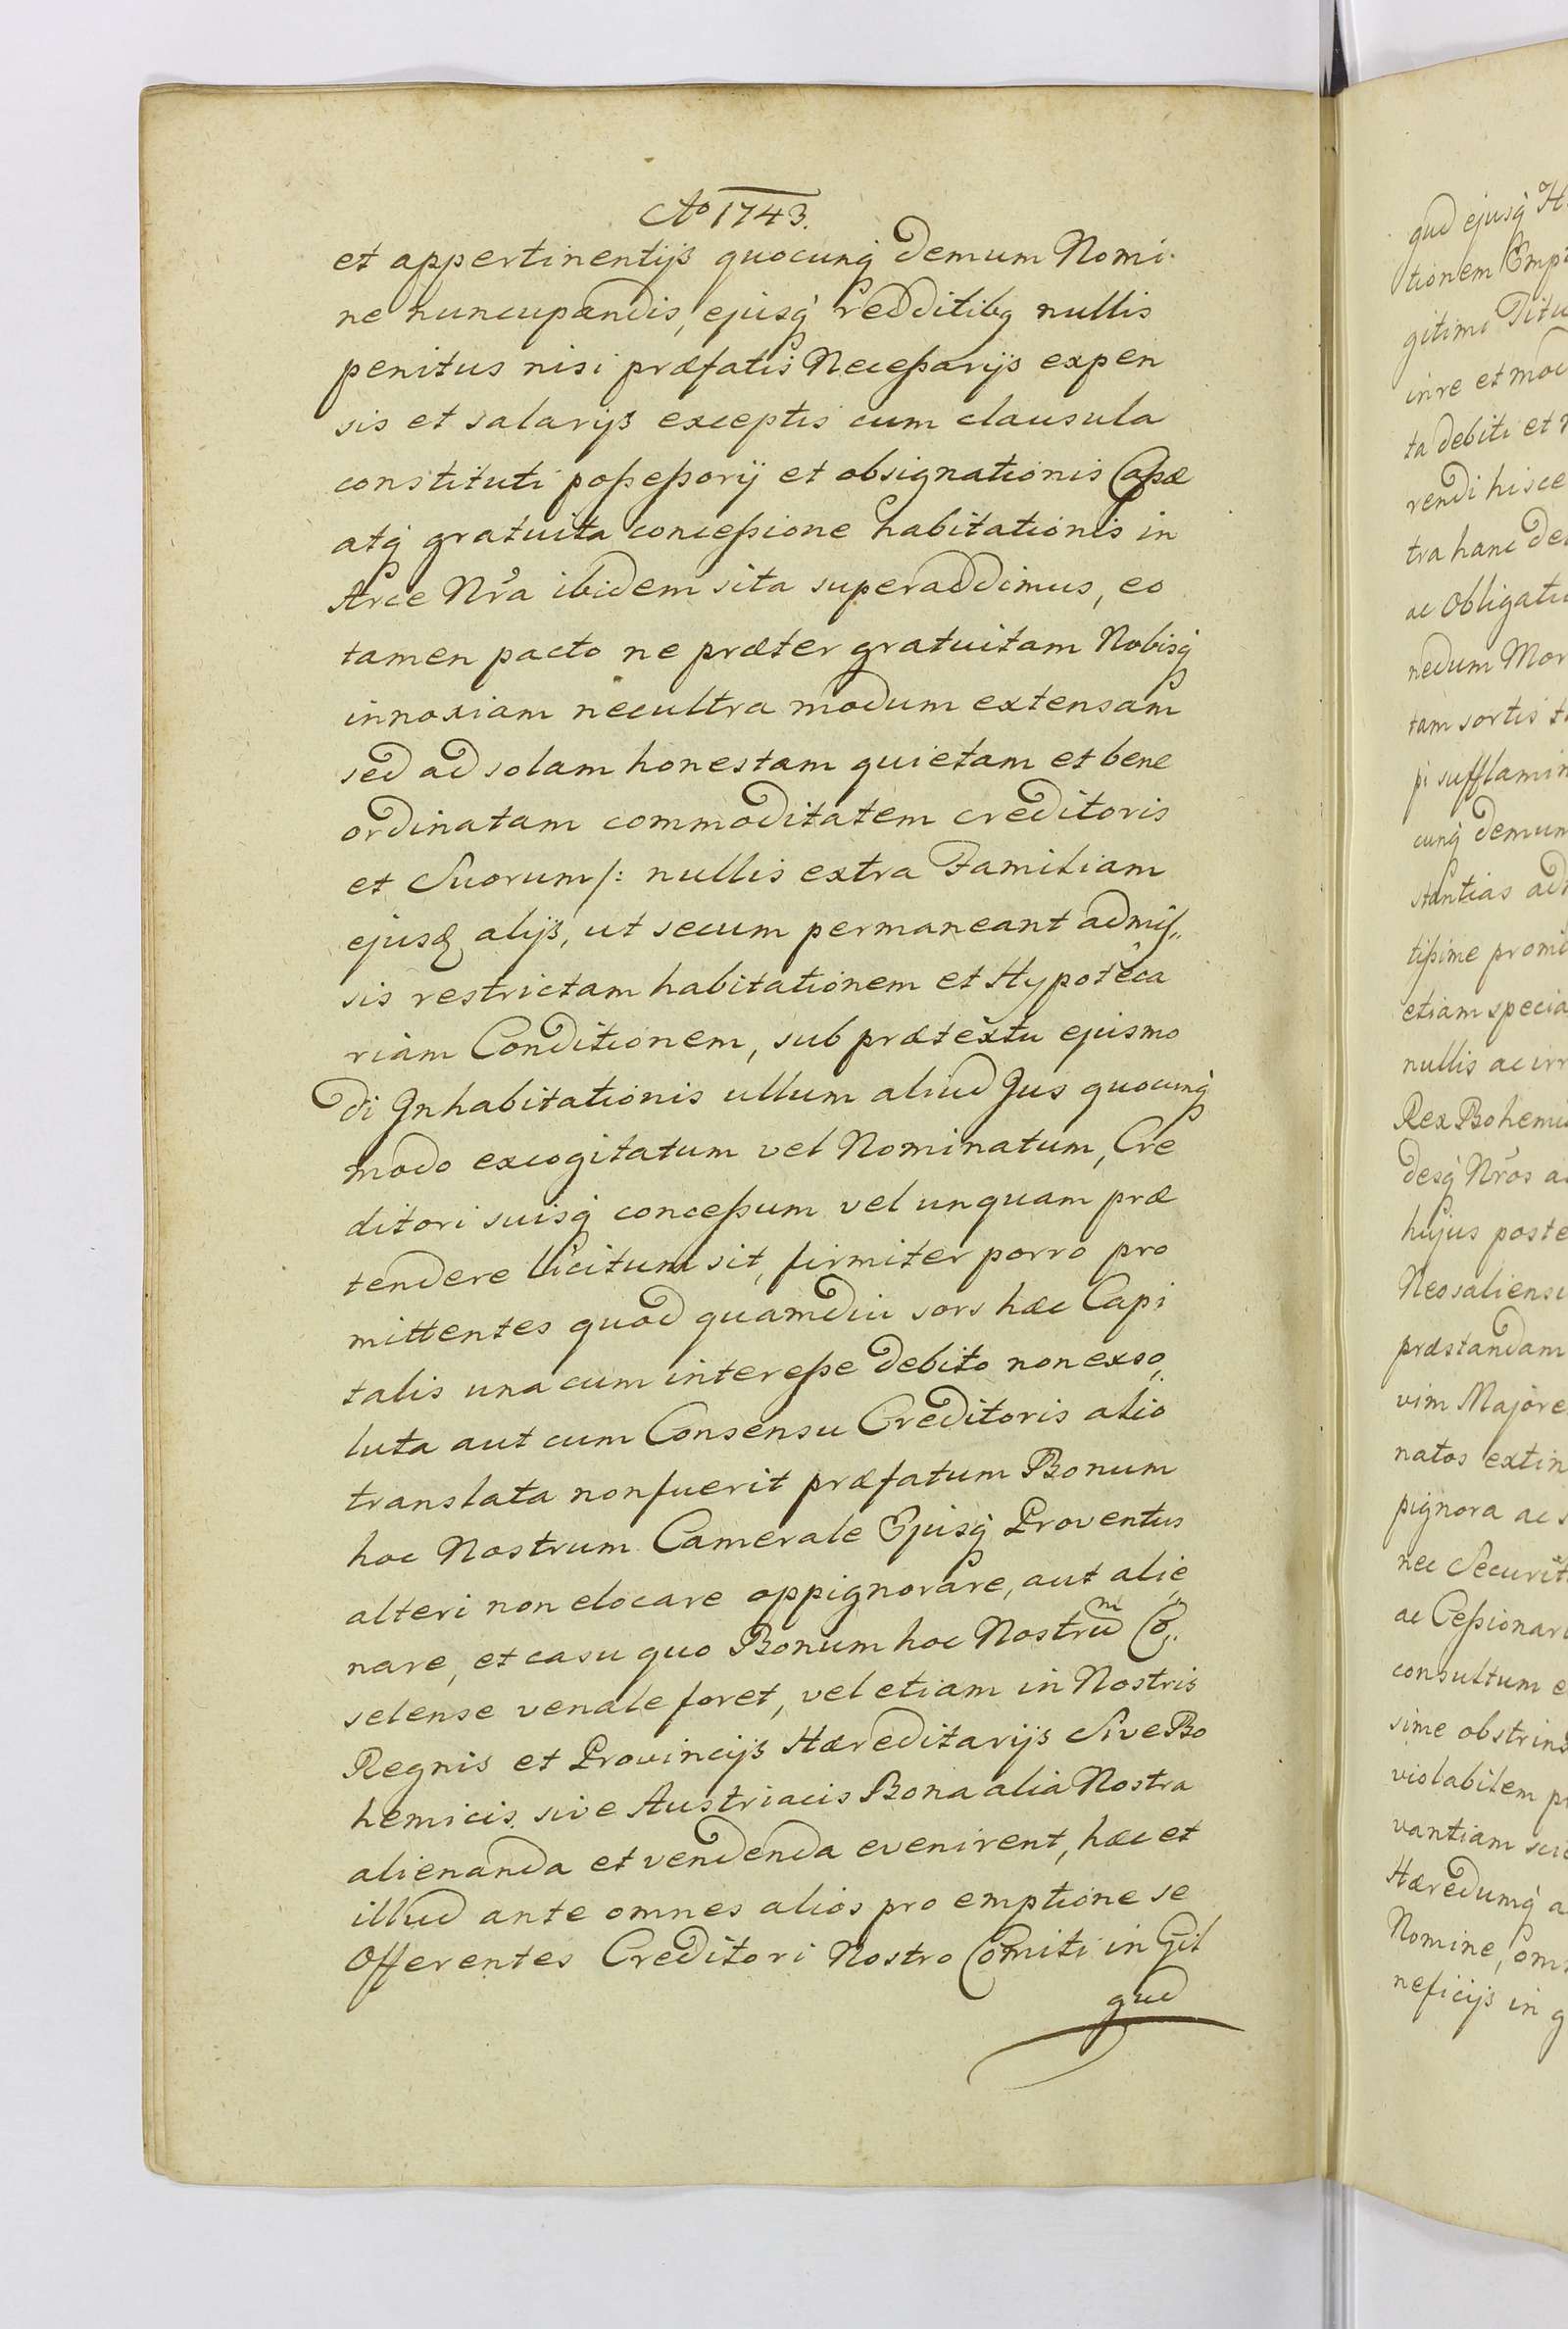 Ao 1743.
et appertinentijs quocunq́ demum Nomi-
ne nuncupandis, ejusq́ redditibq nullis
penitus nisi præfatis Neceßarijs expen
sis et salarijs exceptis cum clausula
constituti poßeßorij et obsignationis Caßæ
atq́ gratuita conceßione habitationis in
Arce Nr̃a ibidem sita superaddimus, eo
tamen pacto ne præter gratuitam Nobisq́
innoxiam necultra modum extensam
sed ad solam honestam quietam et bene
ordinatam commoditatem creditoris
et Suorum /: nullis extra Familiam
ejusq alijs, ut secum permaneant admis„
sis restrictam habitationem et Hypoteca
riam Conditionem, sub prætextu ejusmo
di Inhabitationis ullum aliud Jus quocunq́
modo excogitatum vel Nominatum, Cre
ditori suisq́ conceßum vel unquam præ
tendere licitum sit, firmiter porro pro
mittentes quod quamdiu sors hæc Capi
talis una cum intereße debito non exso„
luta aut cum Consensu Creditoris alio
translata nonfuerit præfatum Bonum
hoc Nostrum Camerale Ejusq́ Proventus
alteri non elocare oppignorare, aut alie„
nare, et casu quo Bonum hoc Nostrum Co„
selense venale foret, vel etiam in Nostris
Regnis et Provincijs Hæreditarijs Sive Bo
hemicis sive Austriacis Bona alia Nostra
alienanda et vendenda evenirent, hæc et
illud ante omnes alios pro emptione se
Offerentes Creditori Nostro Comiti in Gil
gud
gud ejusq́ H
tionem Emp
gitimo Titu
in re et mod
ta debiti et
rendi hisce
tra hanc de
ac Obligati
nedum Mor
tam sortis
pi sufflamin
cunq́ demum
stantias ad
tißime prom
etiam specia
nullis ac irr
Rex Bohemi
desq́ Nr̃os a
hujus poste
Neosaliensi
præstandam
vim Majore
natos extin
pignora ac s
nec Securit
ac Ceßionari
consultum e
sime obstrin
violabilem p
vantiam sci
Hæredumq́ a
Nomine, om
neficijs in g